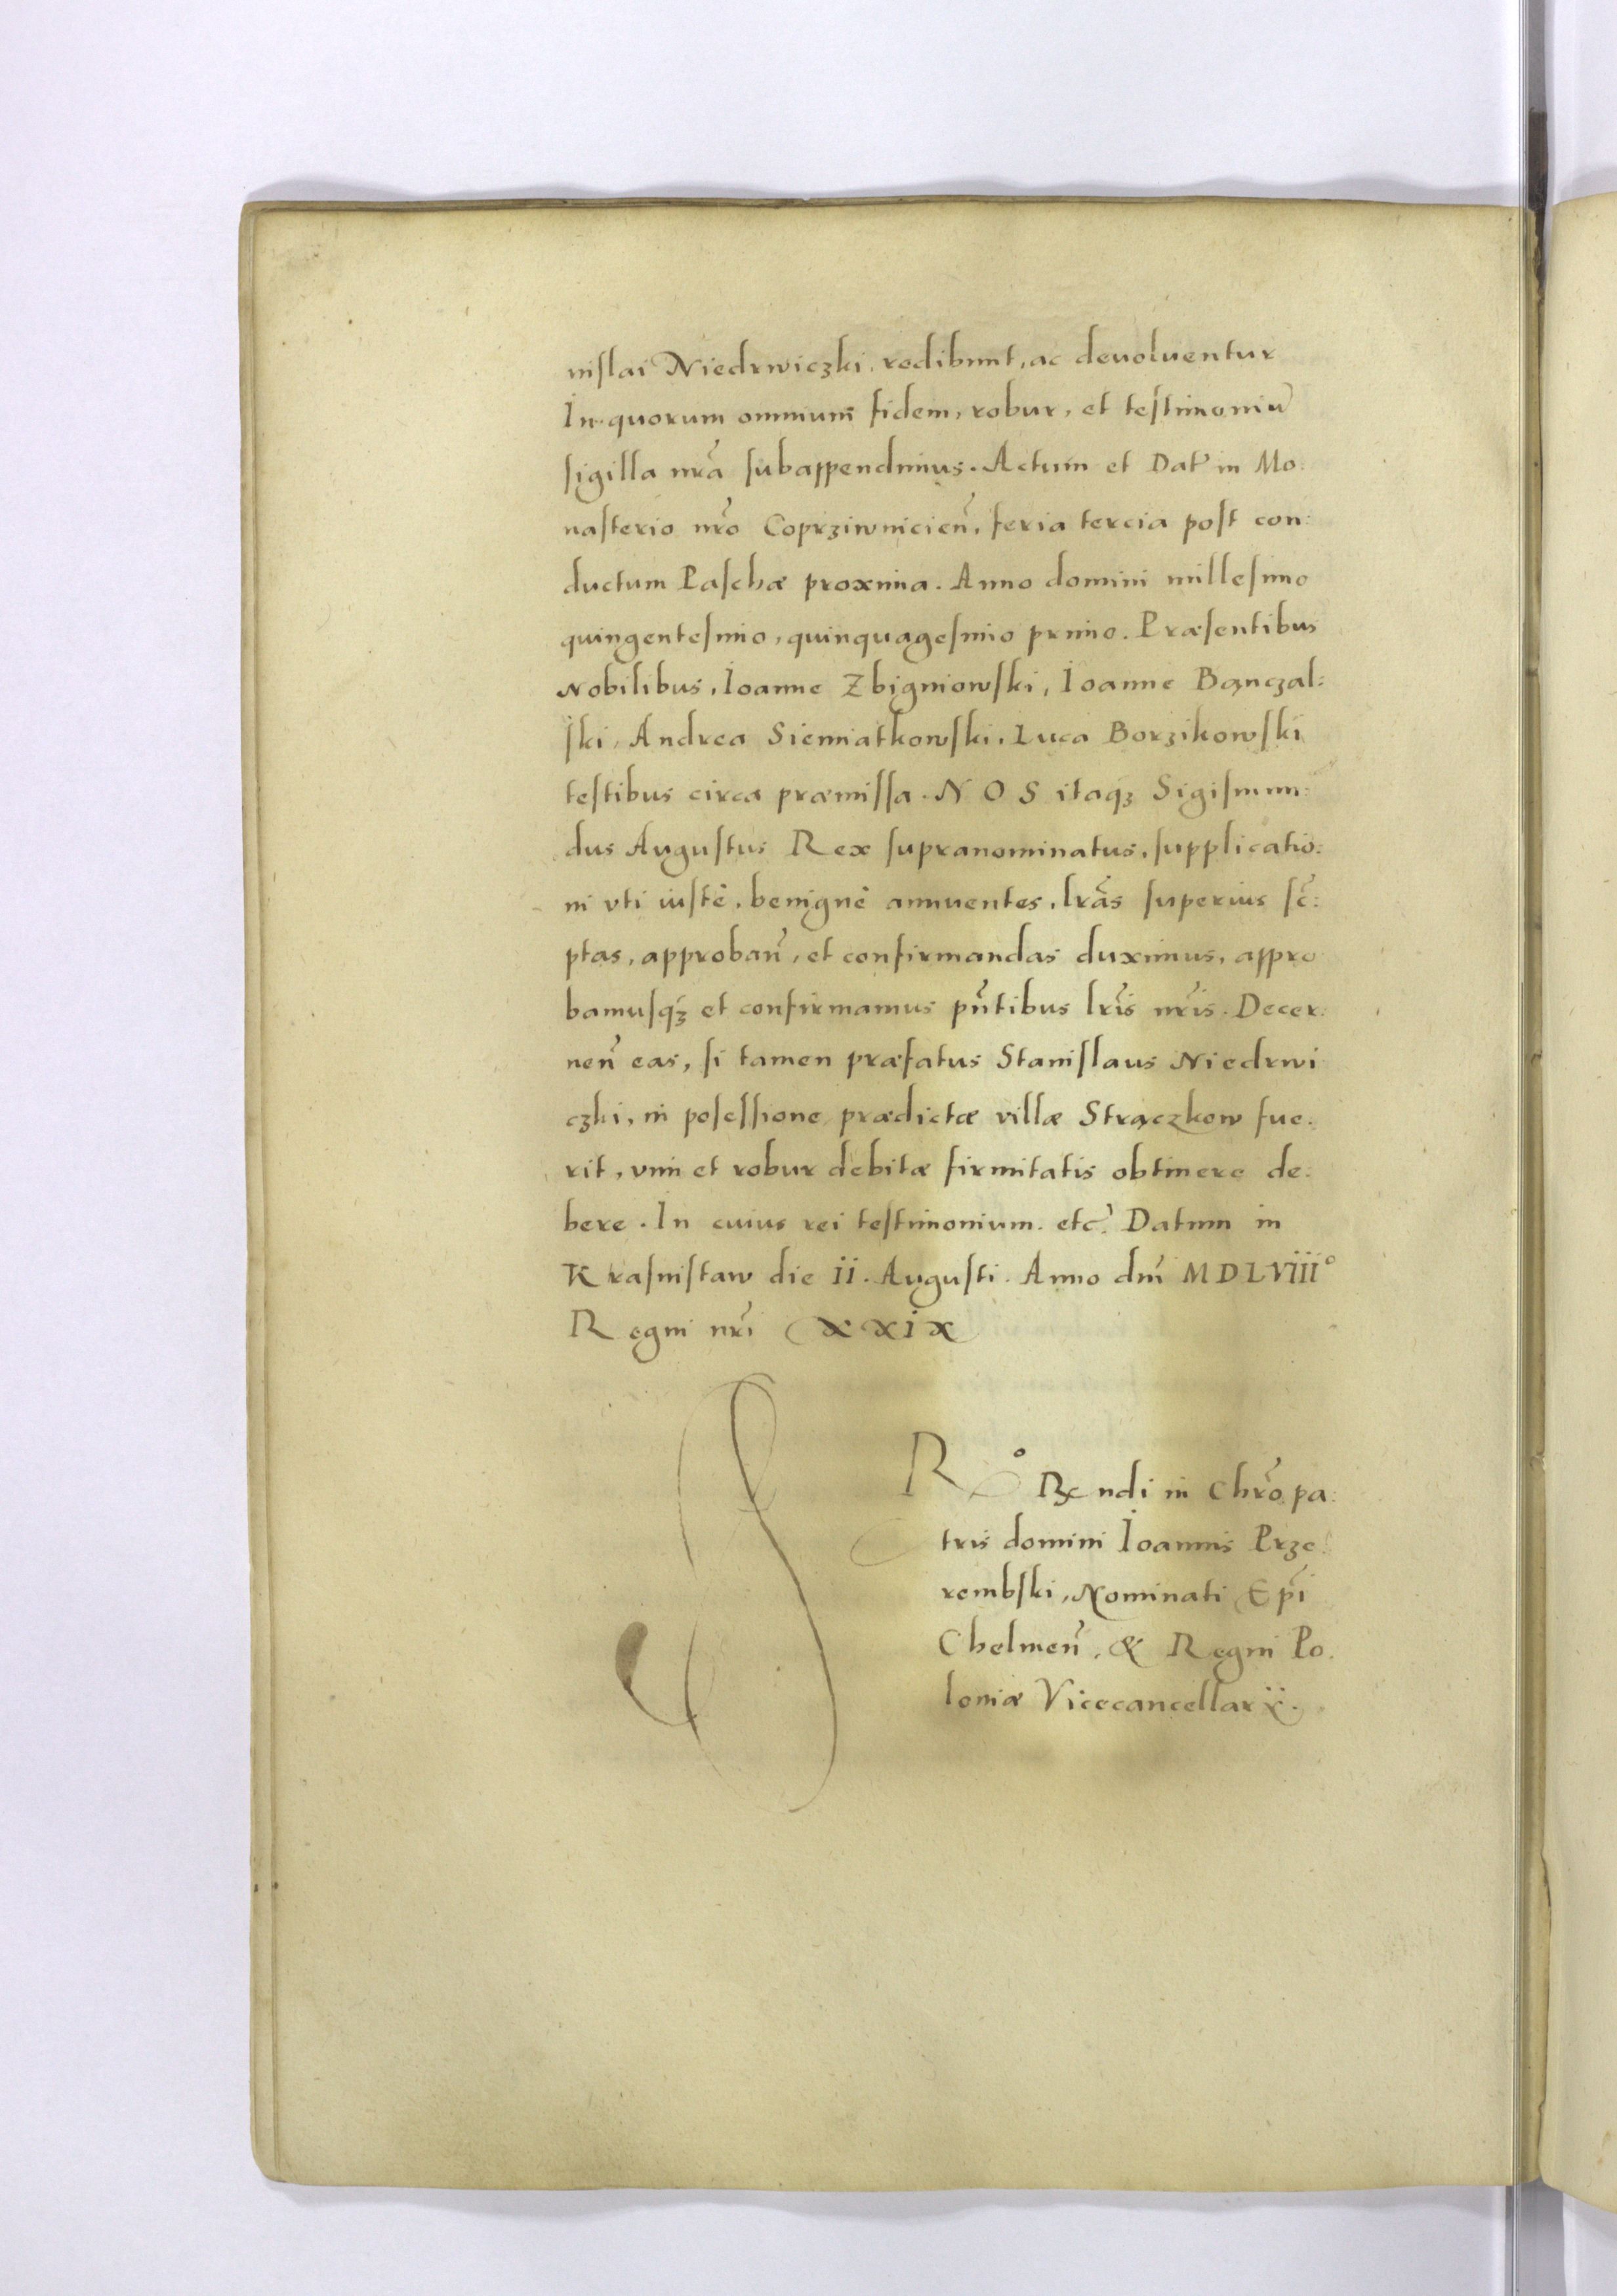 nislai Niedrwiczki, redibunt, ac deuoluentur
In quorum omnium fidem, robur, et testimoniũ
sigilla nrã subappendimus. Actum et Dat̃ in Mo:
nasterio nrõ Coprziwnicieñ, feria tercia post con:
ductum Paschæ proxima. Anno domini millesimo
quingentesimo, quinquagesimo primo. Præsentibus
Nobilibus, Ioanne Zbigniowski, Ioanne Bączal:
ski, Andrea Siemiatkowski, Luca Borzikowski
testibus circa præmissa. NOS itaqꝫ Sigismun:
dus Augustus Rex supranominatus, supplicatio:
ni vti iustè, benignè annuentes, lrãs superius sc̃:
ptas, approbañ, et confirmandas duximus, appro
bamusqꝫ et confirmamus pñtibus lrĩs nrĩs. Decer:
neñ eas, si tamen præfatus Stanislaus Niedrwi
czki, in posessione prædictæ villæ Strączkow fue:
rit, vim et robur debitæ firmitatis obtinere de:
bere. In cuius rei testimonium etc̃. Datum in
Krasnistaw die ii. Augusti. Anno dnĩ MDLViii°
Regni nrĩ XXiX
R° Rẽndi in Chrõ pa:
tris domini Ioannis Prze
rembski, Nominati Epĩ
Chelmeñ, & Regni Po:
loniæ Vicecancellarij.